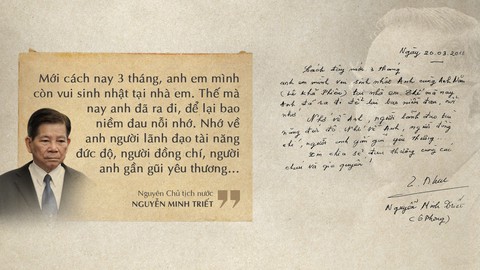 Mới cách nay 3 tháng, anh em mình
còn vui sinh nhật tại nhà em. Thế mà
nay anh đã ra đi, để lại bao
niềm đau nỗi nhớ. Nhớ về
anh người lãnh đạo tài năng
đức độ, người đồng chí, người
anh gần gũi yêu thương...
Nguyên Chủ tịch nước
NGUYỄN MINH TRIẾT
Ngày 20.03.
3 tháng
anh em mình vui sinh nhật Anh cùng Anh
(Lê Khả Phiêu) tại nhà em. Thế mà nay,
Anh đã ra đi để lại bao niềm đau, nỗi
nhớ
Nhớ về Anh, người lãnh đạo tài
năng đức độ. Nhớ về Anh, người đồng
chí, người anh gần gũi yêu thương...
Xin chia sẻ đau thương cùng các
cháu và gia quyến!
Nguyễn Minh Triết
(6 Phong)